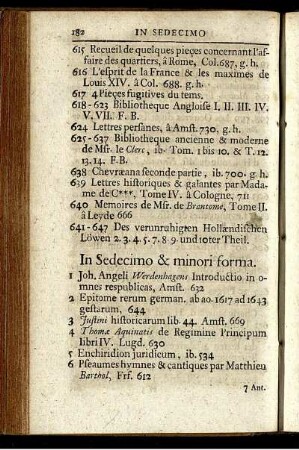 182 IN SEDECIMO
615 Recueil de quelques pieçes concernant l'af-
faire des quartiers, á Rome, Col. 687, g. h.
616 L'esprit de la France & les maximes de
Louis XIV. à Col. 688. g. h.
617 4 Pieçes fugitives du tems.
618-623 Bibliotheque Angloise I. II. III. IV.
V. VII. F. B.
624 Lettres persanes, à Amst. 730, g. h.
625-637 Bibliotheque ancienne & moderne
de Msr. le Clerc, ib- Tom. 1 bis 10, & T. 12.
13. 14. F. B.
638 Chevræana seconde partie, ib. 700. g. h.
639 Lettres historiques & galantes par Mada-
me de C***, Tome IV. à Cologne, 711
640 Memoires de Msr. de Brantome, Tome II.
à Leyde 666
641-647 Des verunruhigten Holländischen
Löwen 2. 3. 4. 5. 7. 8. 9. und 10ter Theil.
In Sedecimo & minori forma.
1 Joh. Angeli Werdenhagens Introductio in o-
mnes respublicas, Amst. 632
2 Epitome rerum german. ab ao. 1617 ad 1643
gestarum, 644
3 Justini historicarum lib. 44. Amst. 669
4 Thomæ Aquinatis de Regimine Principum
libri IV. Lugd. 630
5 Enchiridion juridicum, ib. 534
6 Pseaumes hymnes & cantiques par Matthieu
Barthol, Frf. 612
7 Ant.